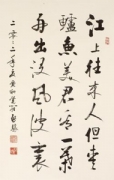 江上往来人但愛
鱸魚美君看一葉
舟出没風波裏
二零一二年